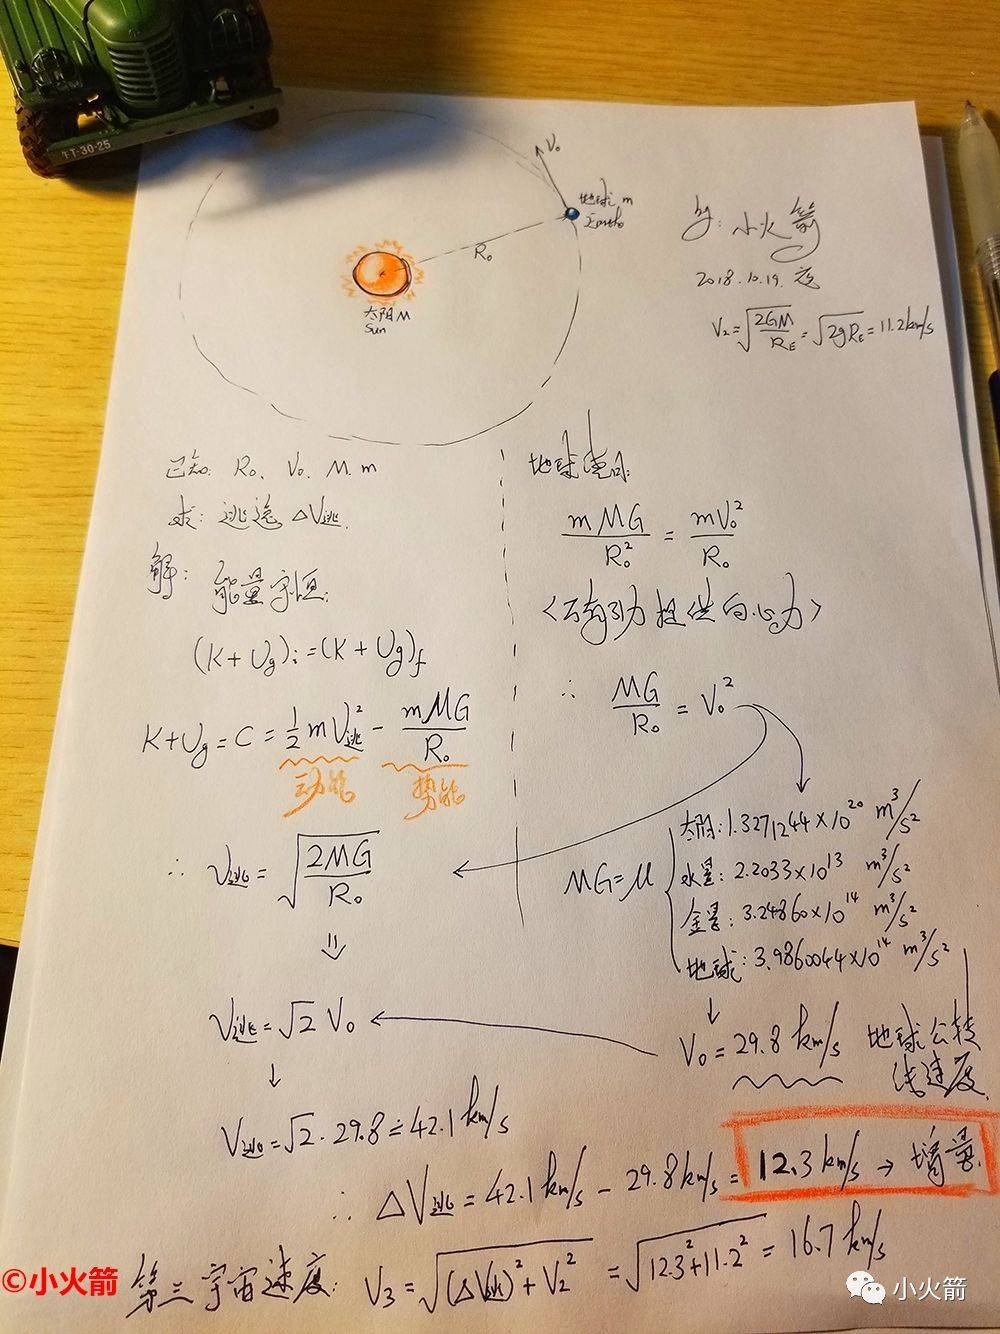 午T-30-25
V₀
地球 m
Earth
R₀
太阳 M
Sun
by: 小火箭
2018.10.19. 夜
V₂=√(2GM/R_E)=√(2gR_E)=11.2km/s
已知: R₀、V₀、M、m
求: 逃逸 ΔV逃.
解: 能量守恒:
(K+Ug)i=(K+Ug)f
K+Ug=C=½mV逃²-mMG/R₀
动能 势能
∴ V逃=√(2MG/R₀)
⇓
V逃=√2 V₀
↓
V逃=√2·29.8≐42.1km/s
地球
mMG/R₀²=mV₀²/R₀
<万有引力提供向心力>
∴ MG/R₀=V₀²
MG=μ
太阳:1.3271244×10²⁰ m³/s²
水星:2.2033×10¹³ m³/s²
金星:3.24860×10¹⁴ m³/s²
地球:3.9860044×10¹⁴ m³/s²
↓
V₀=29.8 km/s 地球公转
线速度.
∴ ΔV逃=42.1km/s-29.8km/s=12.3km/s→增量.
第三宇宙速度: V₃=√((ΔV逃)²+V₂²)=√(12.3²+11.2²)=16.7km/s
©小火箭
小火箭